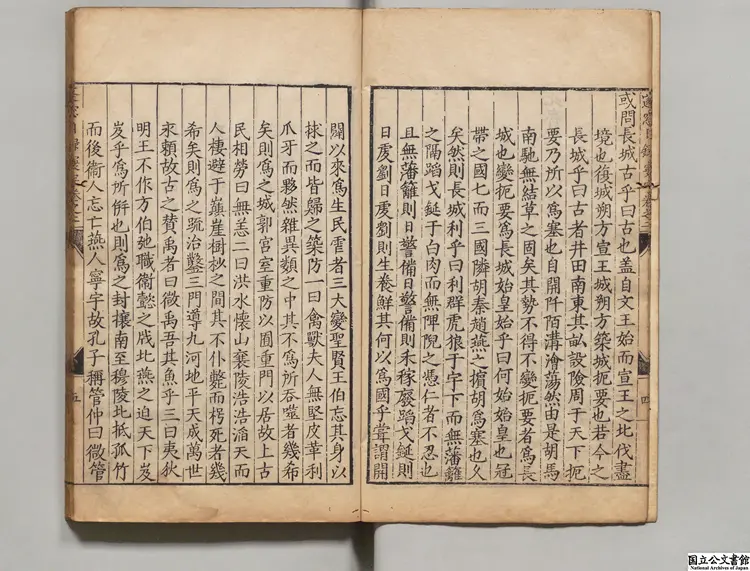 或問長城古乎曰古也盖自文王始而宣王之北伐盡
境也復城朔方宣王城朔方築城扼要也若今之
長城乎曰古者井田南東其畝設險周于天下扼
要乃所以為塞也自開阡陌溝澮蕩然由是胡馬
南馳無結草之固矣其勢不得不變扼要者為長
城也變扼要為長城始皇始乎曰何始始皇也冠
帶之國七而三國隣胡秦趙燕之擯胡為塞也久
矣然則長城利乎曰利群虎狼于宇下而無藩籬
之隔蹈戈鋋于白肉而無睥睨之憑仁者不忍也
且無藩籬則日警備日警備則禾稼廢蹈戈鋋則
日虔劉日虔劉則生養鮮其何以為國乎嘗謂開
四
闢以來為生民害者三大變聖賢王伯忘其身以
捄之而皆歸之築防一曰禽獸夫人無堅皮革利
爪牙而夥然雜異類之中其不為所吞噬者幾希
矣則為之城郭宮室重防以圉重門以居故上古
民相勞曰無恙二曰洪水懷山襄陵浩浩滔天而
人棲避于巔崖樹杪之間其不仆斃而枵死者幾
希矣則為之疏治鑿三門導九河地平天成萬世
永賴故古之賛禹者曰微禹吾其魚乎三曰夷狄
明王不作方伯弛職衞懿之戕北燕之迫天下岌
岌乎為所倂也則為之封攘南至穆陵北抵孤竹
而後衞人忘亡燕人寧宇故孔子稱管仲曰微管
五
国立公文書館
National Archives of Japan